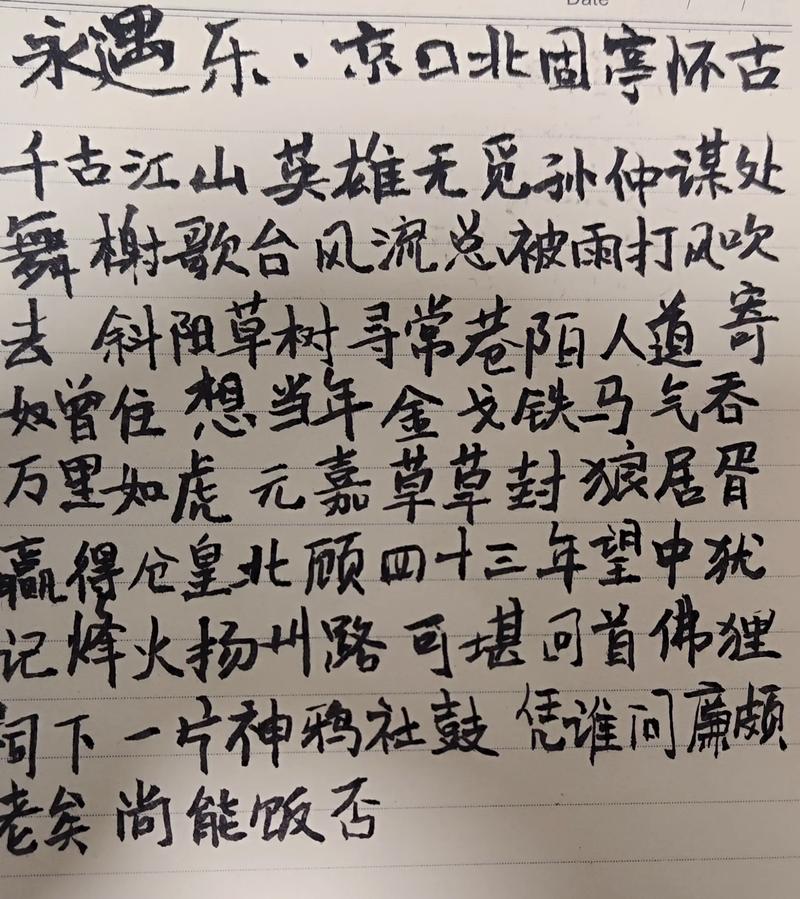 Date
永遇乐·京口北固亭怀古
千古江山 英雄无觅孙仲谋处
舞榭歌台 风流总被雨打风吹
去 斜阳草树 寻常巷陌 人道寄
奴曾住 想当年 金戈铁马 气吞
万里如虎 元嘉草草 封狼居胥
赢得仓皇北顾 四十三年 望中犹
记 烽火扬州路 可堪回首 佛狸
祠下 一片神鸦社鼓 凭谁问 廉颇
老矣 尚能饭否